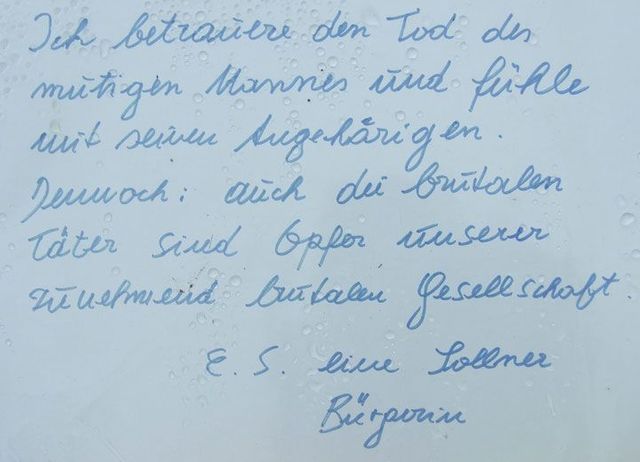 Ich betrauere den Tod des
mutigen Mannes und fühle
mit seinen Angehörigen.
Dennoch: auch die brutalen
Täter sind Opfer unserer
zunehmend brutalen Gesellschaft.
E. S. eine Sollner
Bürgerin